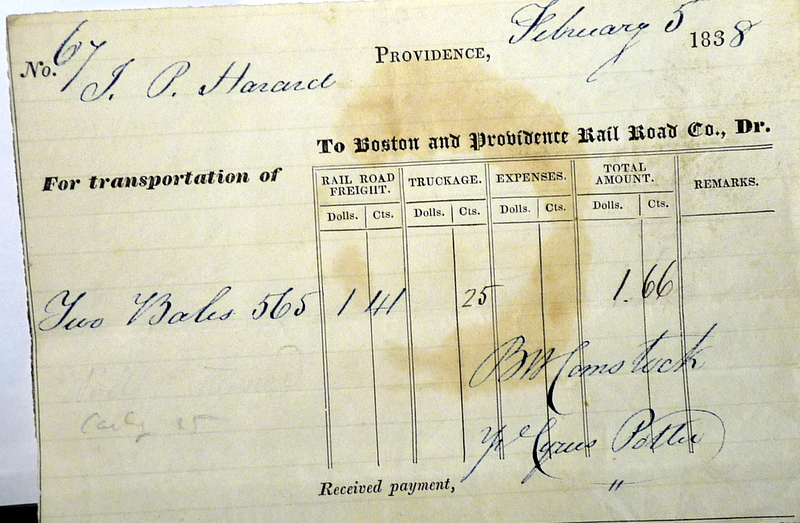 No. 67
PROVIDENCE, February 5 1838
J. P. Hazard
To Boston and Providence Rail Road Co., Dr.
For transportation of
RAIL ROAD FREIGHT. TRUCKAGE. EXPENSES. TOTAL AMOUNT. REMARKS.
Dolls. Cts. Dolls. Cts. Dolls. Cts. Dolls. Cts.
Two Bales 565 1 41 25 1.66
Comstock
Cyrus Potter
Received payment, "